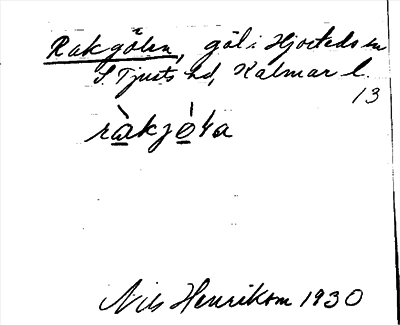 Rakgölen, göl i Hjorteds sn
S. Tjusts hd, Kalmar l.
13
ràkjòla
Nils Henrikson 1930